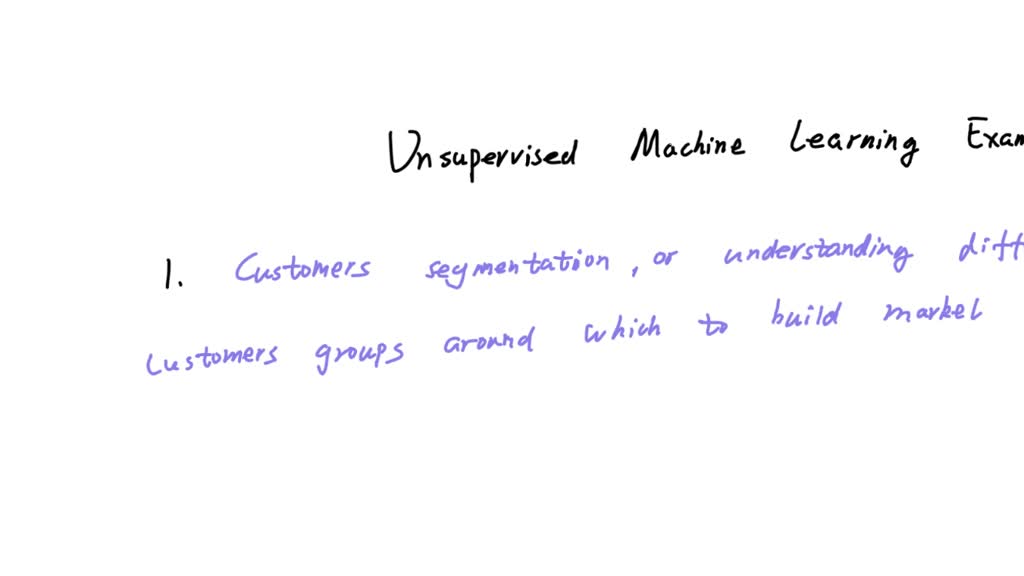 Unsupervised Machine Learning Exam
1. Customers segmentation, or understanding diff
Customers groups around which to build market